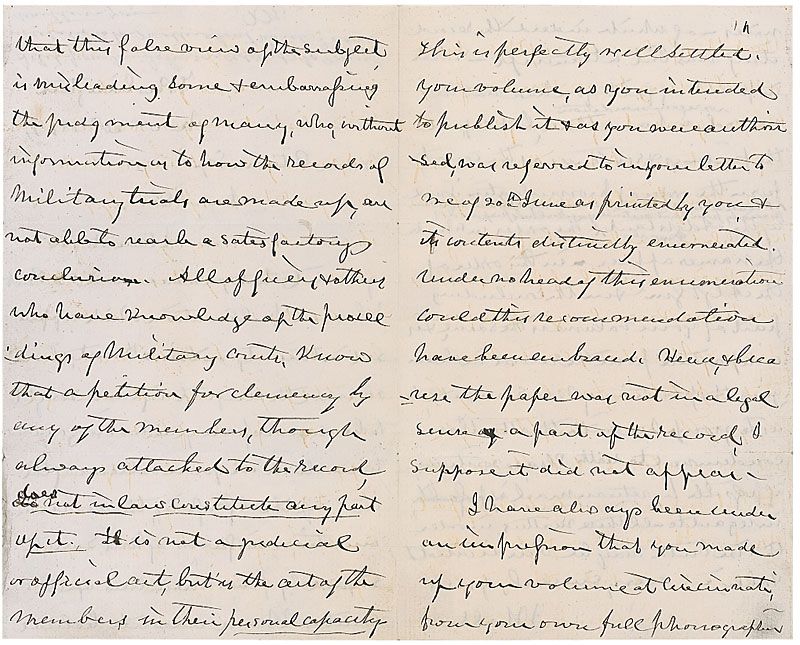 that this false view of the subject
is misleading some & embarrassing
the judgment of many, who, without
information as to how the records of
Military trials are made up, are
not able to reach a satisfactory
conclusion. All officers & others
who have knowledge of the procee
dings of Military courts, Know
that a petition for clemency by
any of the members, though
always attached to the record,
does not in law constitute any part
of it. It is not a judicial
or official act, but is the act of the
members in their personal capacity
This is perfectly well settled.
Your volume, as you intended
to publish it & as you were authori
-sed, was referred to in your letter to
me of 20th June as printed by you &
its contents distinctly enumerated.
Under no head of this enumeration
could this recommendation
have been embraced. Hence, & beca
-use the paper was not in a legal
sense a part of the record, I
suppose it did not appear.
I have always been under
an impression that you made
up your volume at Cincinnati,
from your own full phonographic